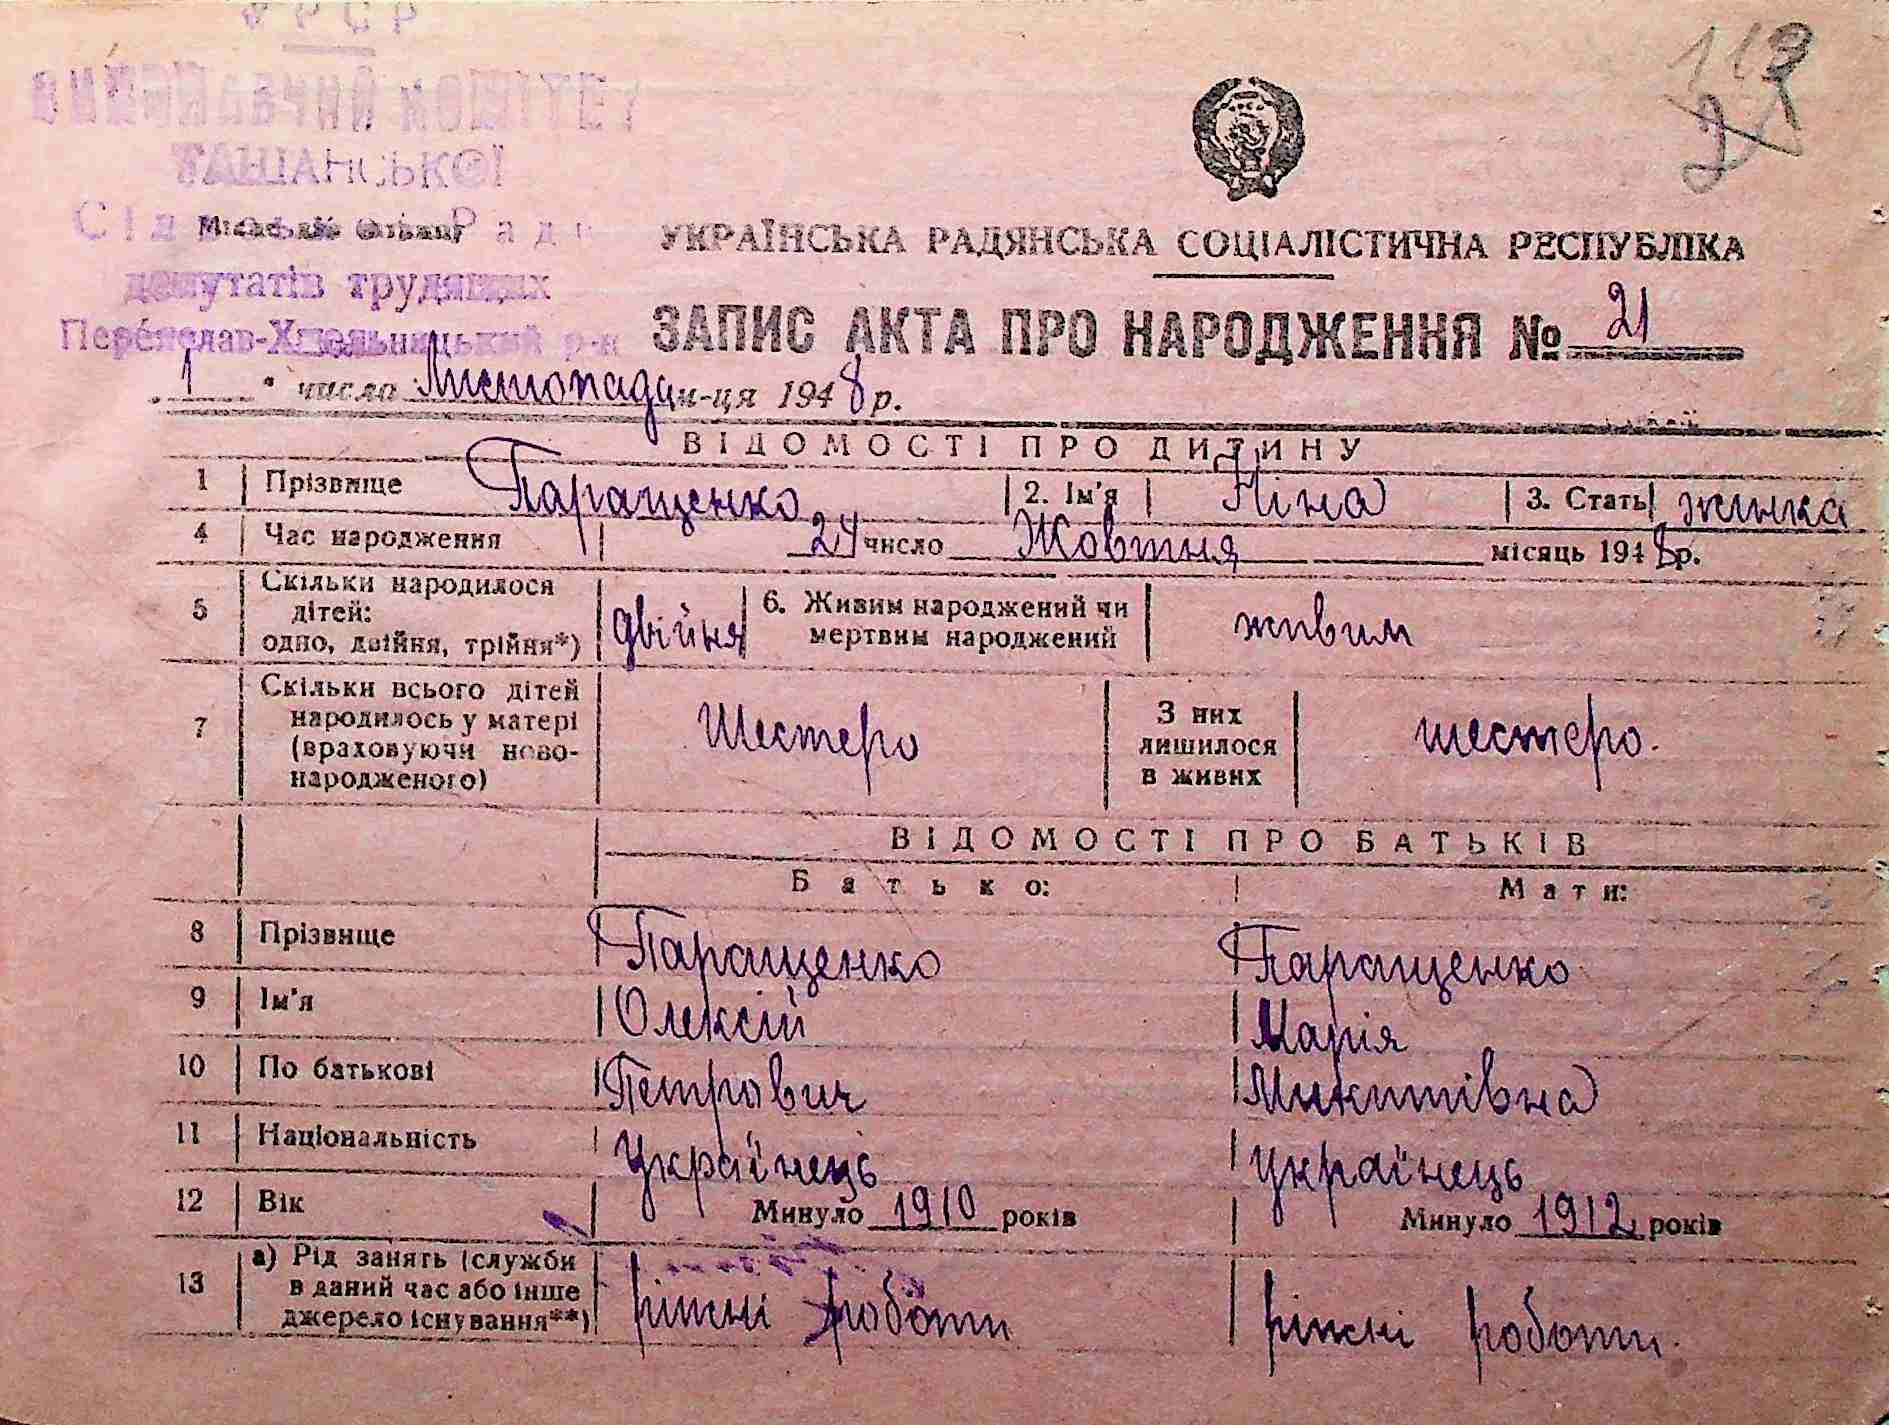 УРСР
ВИКОНАВЧИЙ КОМІТЕТ
ТАШАНСЬКОЇ
Сільської Ради
депутатів трудящих
Переяслав-Хмельницький р-н
УКРАЇНСЬКА РАДЯНСЬКА СОЦІАЛІСТИЧНА РЕСПУБЛІКА
ЗАПИС АКТА ПРО НАРОДЖЕННЯ № 21
1 " число Листопада м-ця 1948 р.
ВІДОМОСТІ ПРО ДИТИНУ
1 Прізвище Паращенко 2. Ім'я Ніна 3. Стать жинка
4 Час народження 24 число Жовтня місяць 1948 р.
5 Скільки народилося
дітей:
одно, двійня, трійня*) двійня 6. Живим народжений чи
мертвим народжений живим
7 Скільки всього дітей
народилось у матері
(враховуючи ново-
народженого) Шестеро З них
лишилося
в живих шестеро.
ВІДОМОСТІ ПРО БАТЬКІВ
Батько: Мати:
8 Прізвище Паращенко Паращенко
9 Ім'я Олексій Марія
10 По батькові Петрович Микитівна
11 Національність Українець українець
12 Вік Минуло 1910 років Минуло 1912 років
13 а) Рід занять (служби
в даний час або інше
джерело існування**) ріжні роботи ріжні роботи.